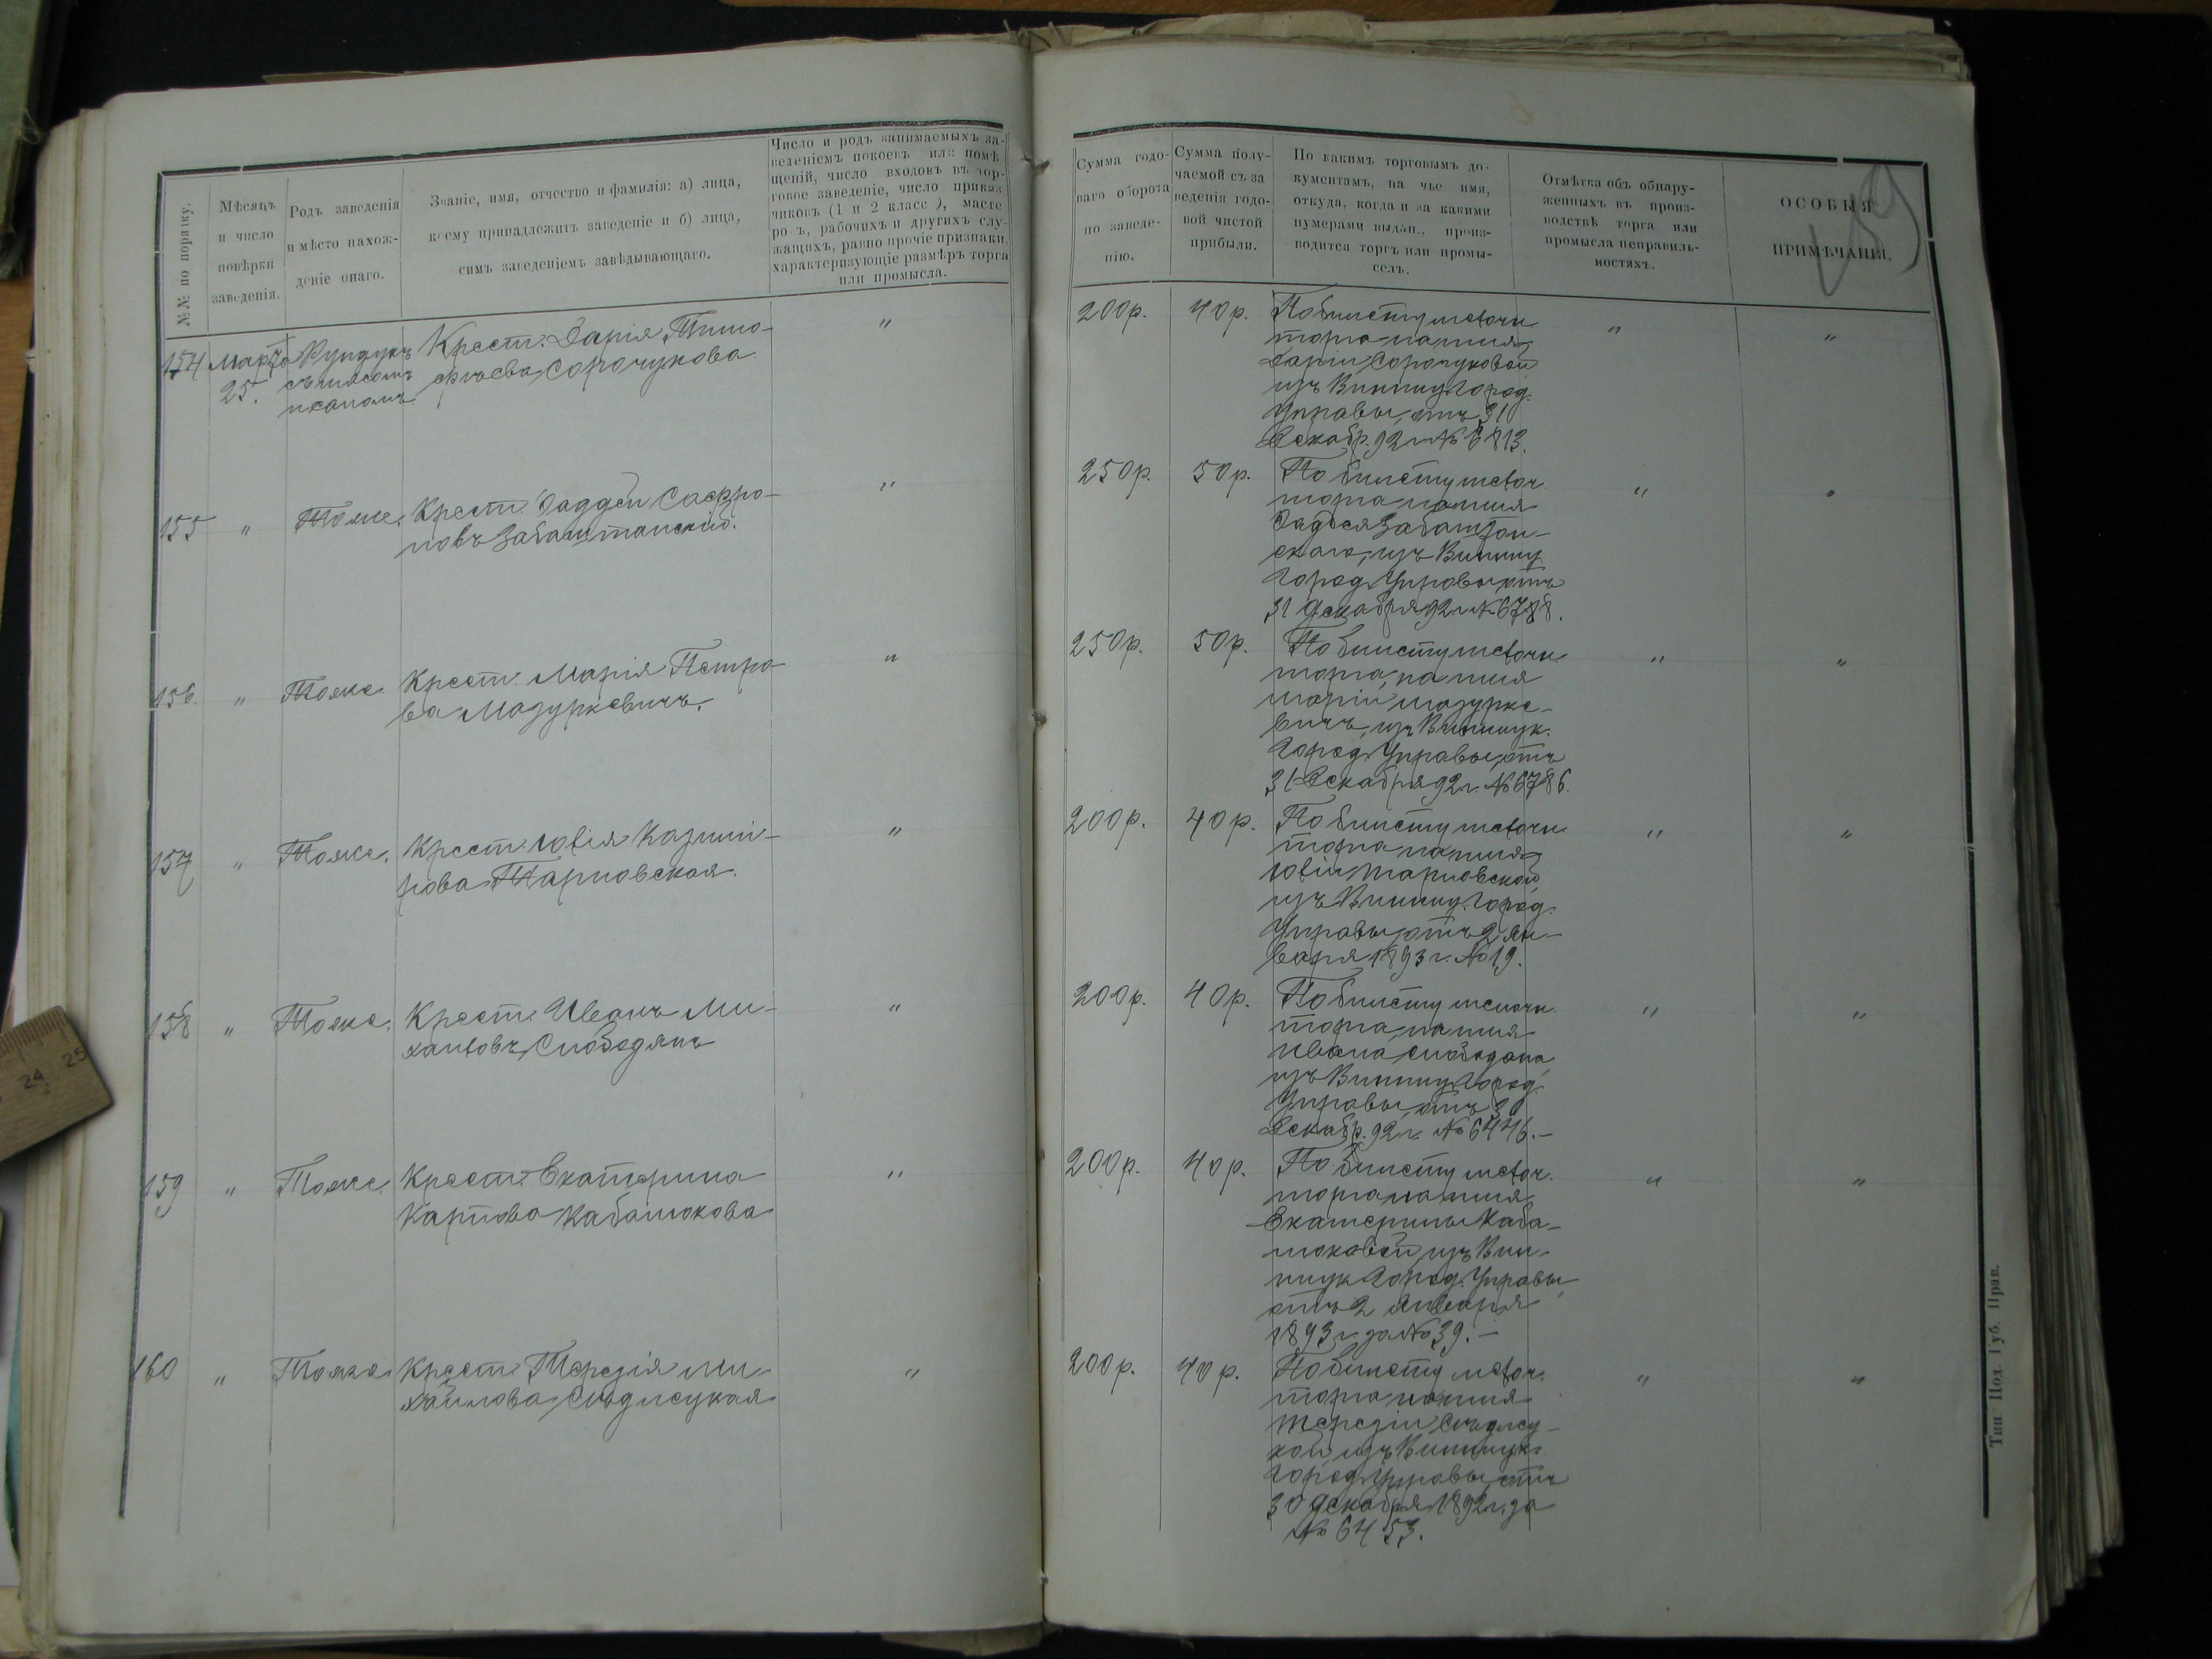 №№ по порядку.
Мѣсяцъ
и число
повѣрки
заведенія.
Родъ заведенія
и мѣсто нахож-
деніе онаго.
Званіе, имя, отчество и фамилія: а) лица,
коему принадлежитъ заведеніе и б) лица,
симъ заведеніемъ завѣдывающаго.
Число и родъ занимаемыхъ за-
веденіемъ покоевъ или помѣ
щеній, число входовъ въ тор-
говое заведеніе, число приказ
чиковъ (1 и 2 класс ), масте
ро ъ, рабочихъ и другихъ слу-
жащихъ, равно прочіе признаки,
характеризующіе размѣръ торга
или промысла.
Сумма годо-
ваго оборота
по заведе-
нію.
Сумма полу-
чаемой съ за
веденія годо-
вой чистой
прибыли.
По какимъ торговымъ до-
кументамъ, на чье имя,
откуда, когда и за какими
нумерами выдан., произ-
водится торгъ или промы-
селъ.
Отмѣтка объ обнару-
женныхъ въ произ-
водствѣ торга или
промысла неправиль-
ностяхъ.
ОСОБЫЯ
ПРИМѢЧАНІЯ.
159
154 Марта Рундукъ Крест. Дарія Тимо- "
25. съ мясомъ фѣева Сорочукова.
и саломъ.
200р. 40р. По билету мелочн. " "
торга на имя
Даріи Сорочуковой
изъ Винниц. Город.
Управы, отъ 31
Декабр. 92 г. № 6813.
155 " Тоже. Крест. Фаддей Сафро- "
новъ Забаштанскій.
250р. 50р. По билету мелоч. " "
торга на имя
Фадѣя Забаштан-
скаго, изъ Винниц
Город. Управы, отъ
31 Декабря 92 г. № 6788.
156. " Тоже. Крест. Марія Петро- "
ва Мазуркевичъ.
250р. 50р. По билету мелочн. " "
торга, на имя
Маріи Мазурке-
вичъ, изъ Винницк.
Город. Управы, отъ
31 Декабря 92 г. № 6786.
157 " Тоже. Крест. Юлія Казими- "
рова Тарновская.
200р. 40р. По билету мелочн. " "
торга на имя
Юліи Тарновской
изъ Винниц. Город.
Управы, отъ 2 Ян-
варя 1893 г. № 19.
158 " Тоже. Крест. Иванъ Ми- "
хайловъ Слободянъ
200р. 40р. По билету мелочн. " "
торга, на имя
Ивана Слободяна,
изъ Винниц. Город.
Управы, отъ 30
Декабр. 92 г. № 6446.—
159 " Тоже. Крест. Екатерина "
Карпова Кабатюкова
200р. 40р. По билету мелоч. " "
торга на имя
Екатерины Каба-
тюковой, изъ Вин-
ницк. Город. Управы,
отъ 2 Января
1893 г. за № 39.—
160 " Тоже Крест. Терезія Ми- "
хайлова
200р. 40р. По билету мелоч. " "
торга на имя
Терезіи
кой, изъ Винницк.
Город. Управы, отъ
30 Декабря 1892 г. за
№ 6453.
Тип Под. Губ. Прав.
24 25